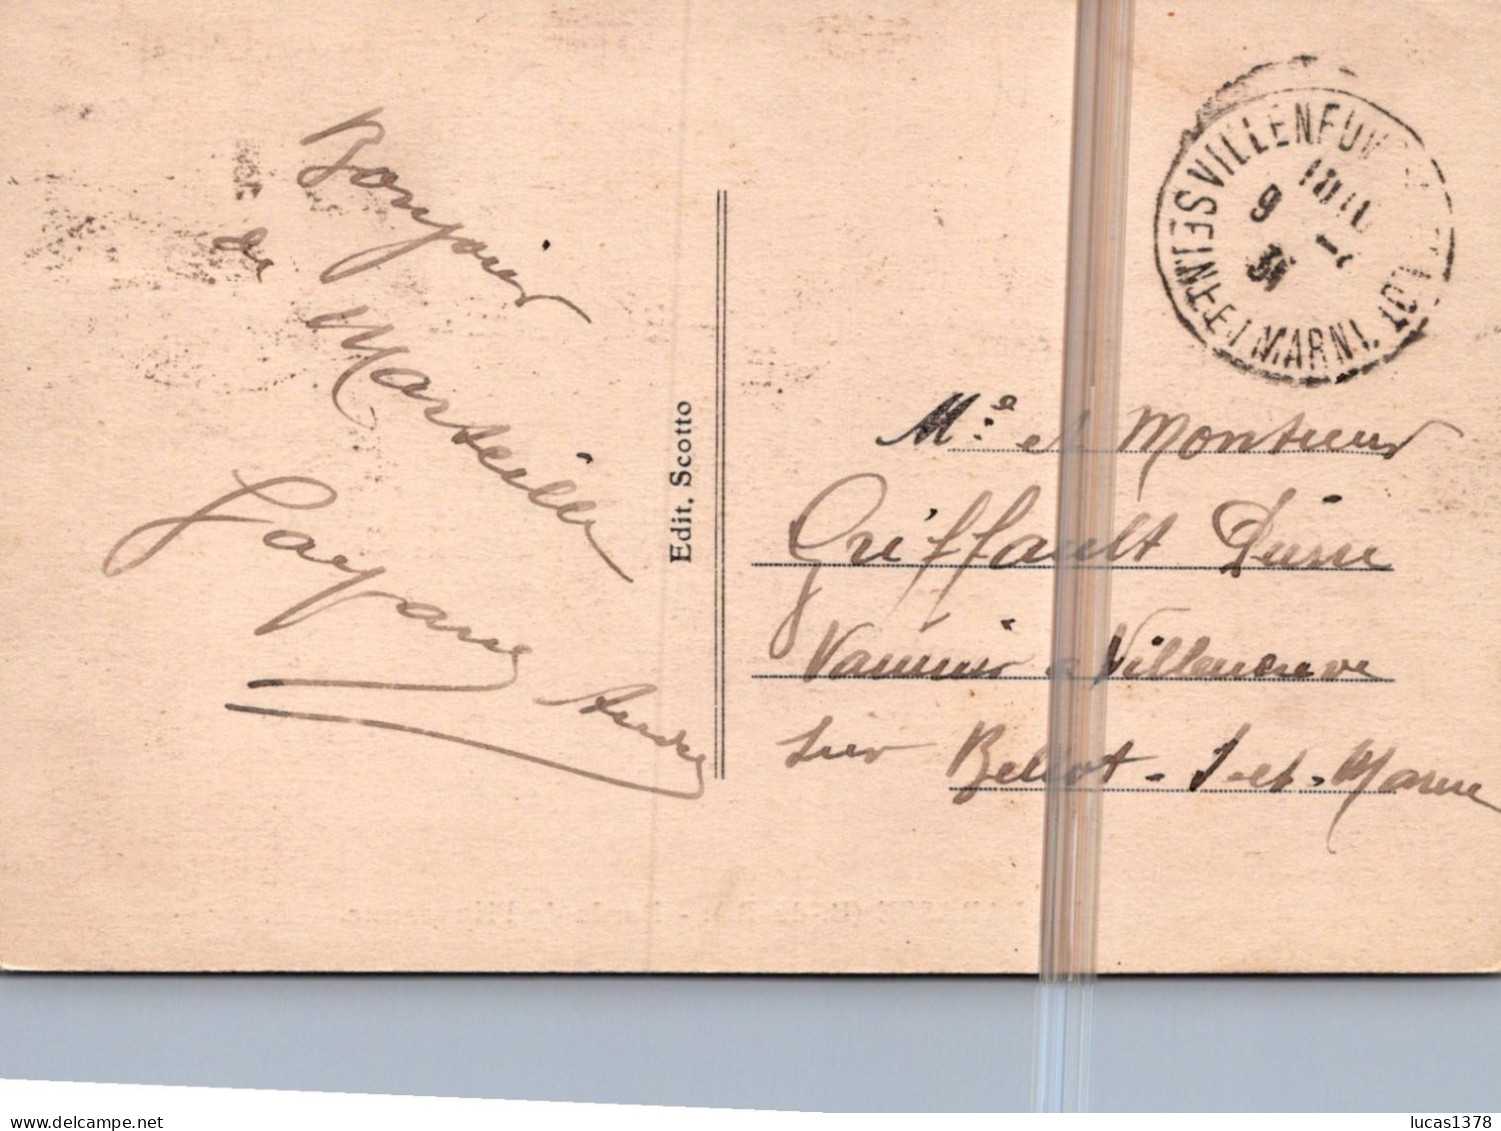 Bonjour
de
Marseille
André
Edit. Scotto
VILLENEUVE
SEINE ET MARNE
9
31
Mᵉ et Monsieur
Griffault
Vannier a Villeneuve
sur Bellot - S-et-Marne
www.delcampe.net
lucas1378